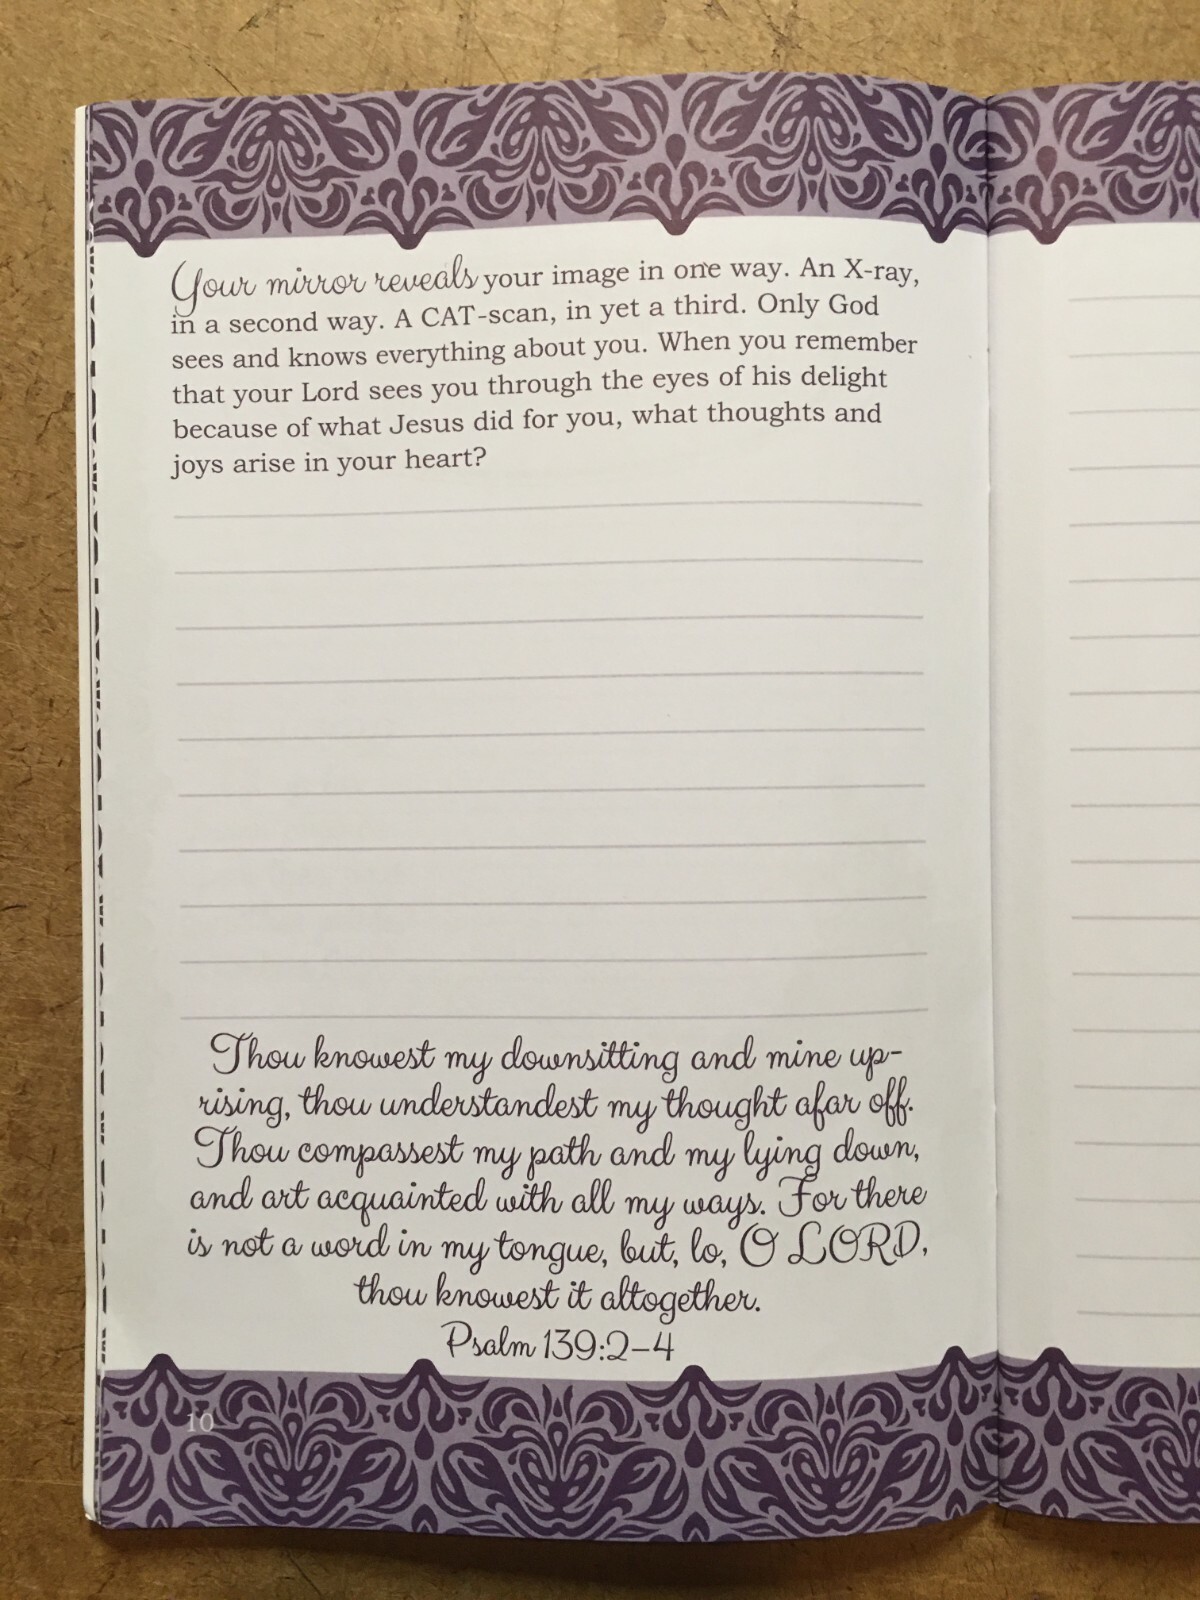 Your mirror reveals your image in one way. An X-ray,
in a second way. A CAT-scan, in yet a third. Only God
sees and knows everything about you. When you remember
that your Lord sees you through the eyes of his delight
because of what Jesus did for you, what thoughts and
joys arise in your heart?
Thou knowest my downsitting and mine up-
rising, thou understandest my thought afar off.
Thou compassest my path and my lying down,
and art acquainted with all my ways. For there
is not a word in my tongue, but, lo, O LORD,
thou knowest it altogether.
Psalm 139:2–4
10